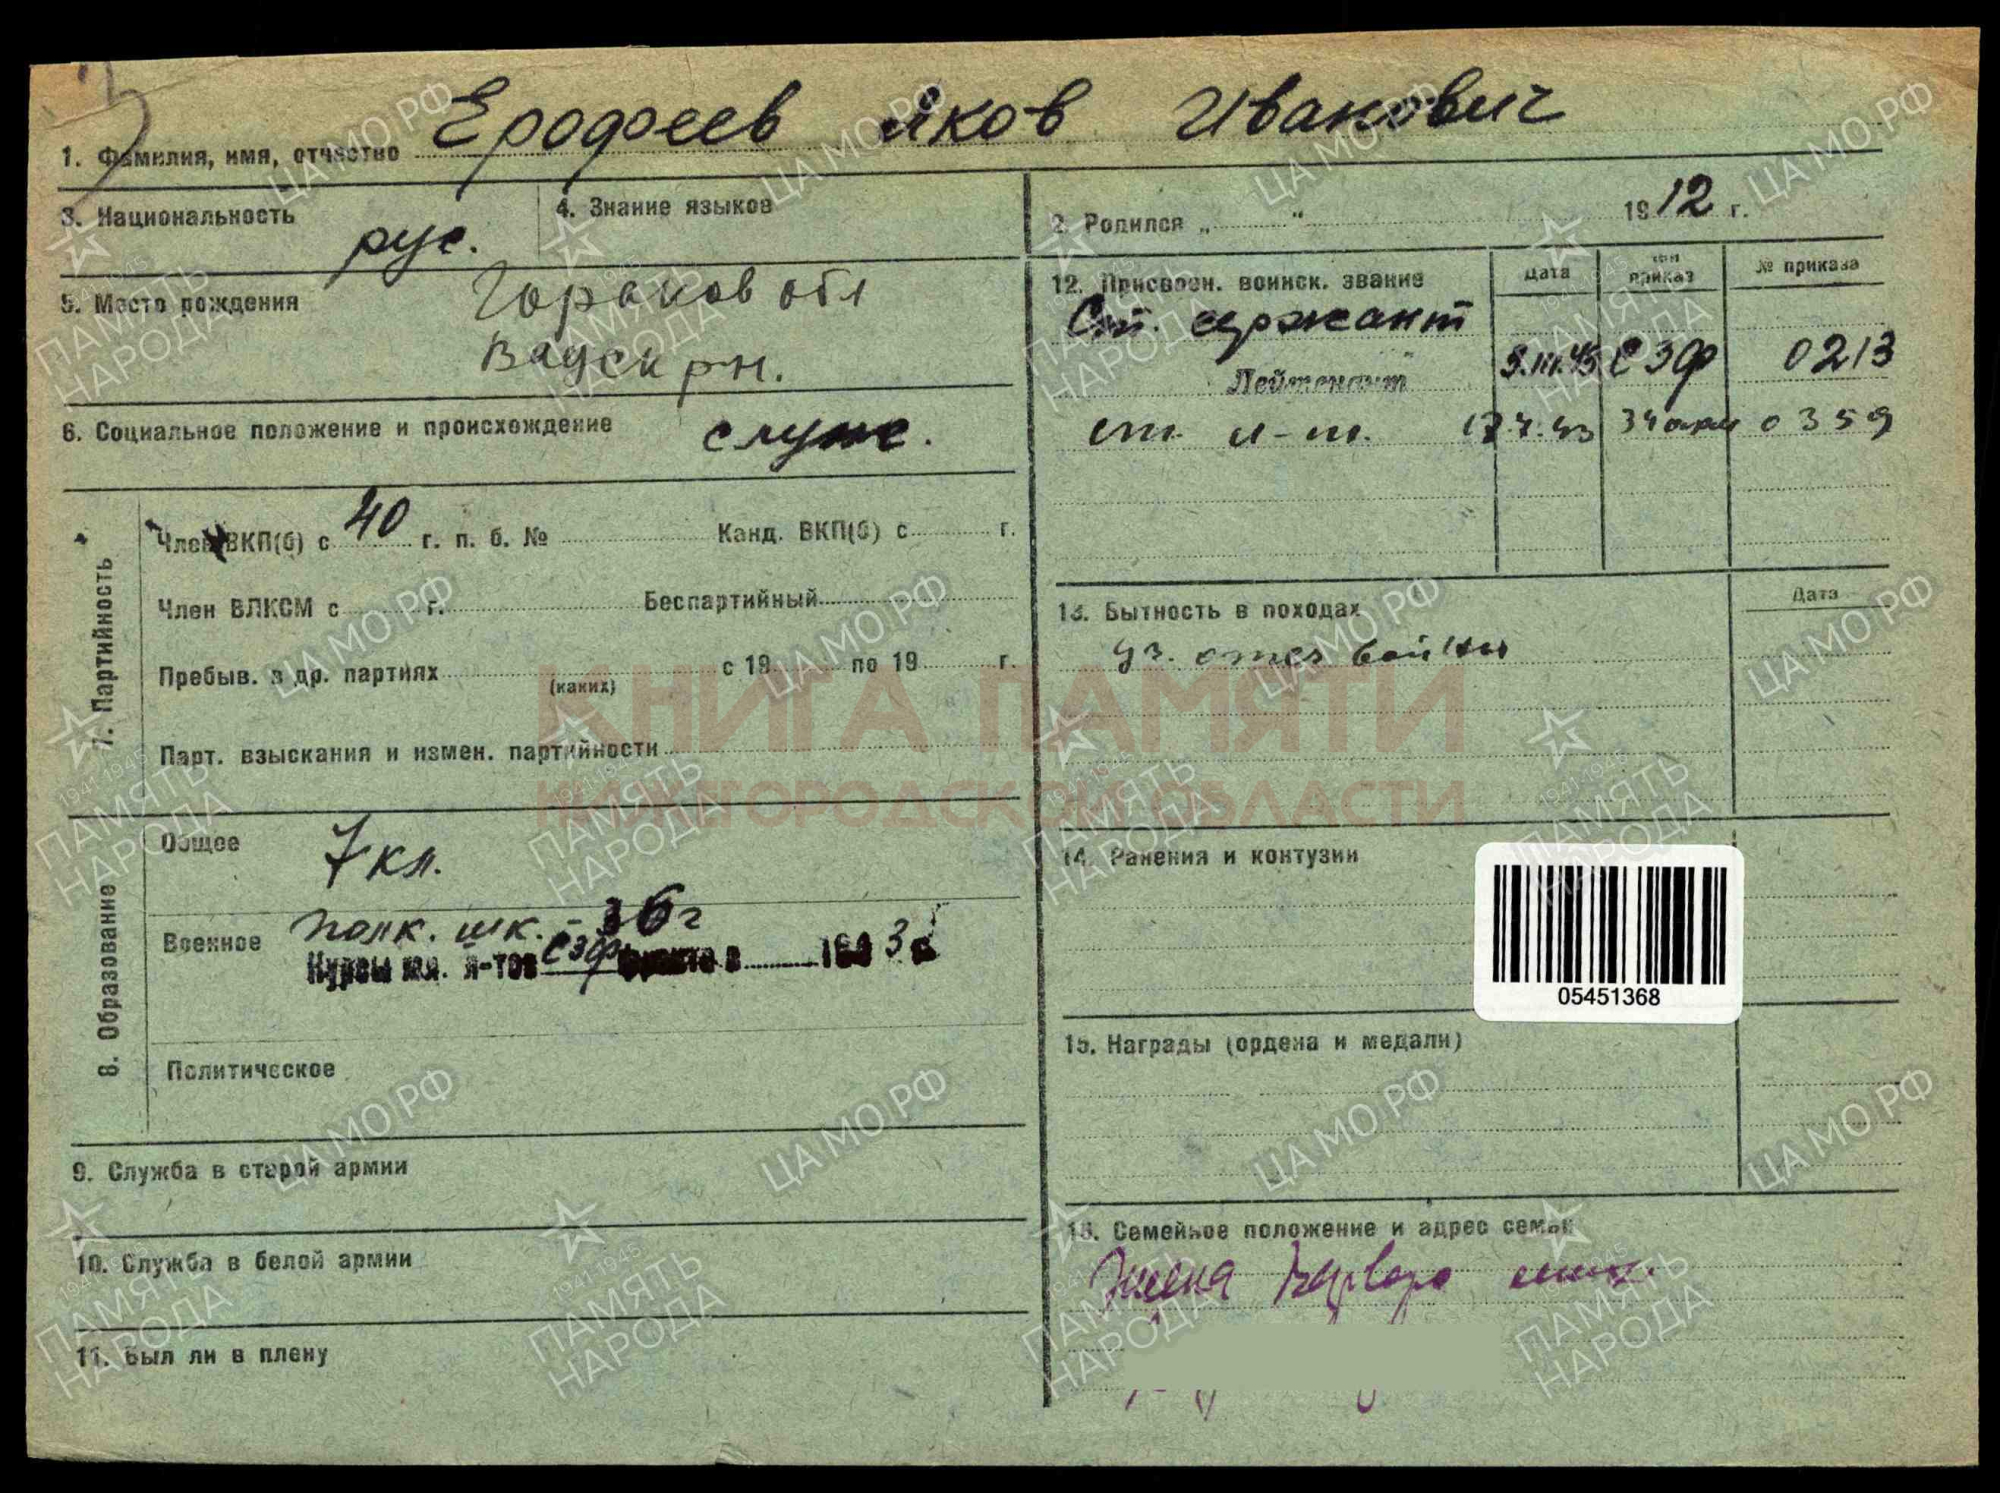 Ерофеев Яков Иванович
1. Фамилия, имя, отчество
3. Национальность
рус.
4. Знание языков
2. Родился „ “ 1912 г.
5. Место рождения
Горьков обл
Вадск рн.
6. Социальное положение и происхождение
служ.
7. Партийность
Член ВКП(б) с 40 г. п. б. № Канд. ВКП(б) с г.
Член ВЛКСМ с г. Беспартийный
Пребыв. в др. партиях с 19 по 19 г.
(каких)
Парт. взыскания и измен. партийности
8. Образование
Общее
7 кл.
Военное
полк. шк. - 36 г
Курсы мл. л-тов СЗФ фронта в 1943 г.
Политическое
9. Служба в старой армии
10. Служба в белой армии
11. Был ли в плену
12. Присвоен. воинск. звание Дата приказ № приказа
Ст. сержант
Лейтенант СЗФ 0213
ст. л-т. 0359
13. Бытность в походах Дата
уч. отеч войны
14. Ранения и контузии
05451368
15. Награды (ордена и медали)
16. Семейное положение и адрес семьи
Жена Варвара
КНИГА ПАМЯТИ
НИЖЕГОРОДСКОЙ ОБЛАСТИ
ЦА МО РФ
1941-1945
ПАМЯТЬ
НАРОДА